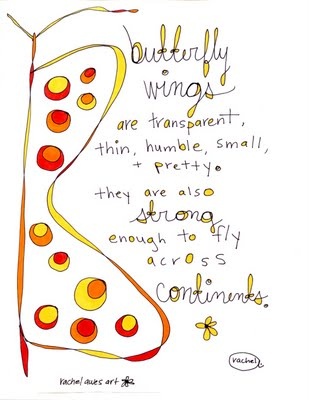 butterfly
wings
are transparent,
thin, humble, small,
+ pretty.
they are also
strong
enough to fly
across
continents.
rachel
rachel awes art